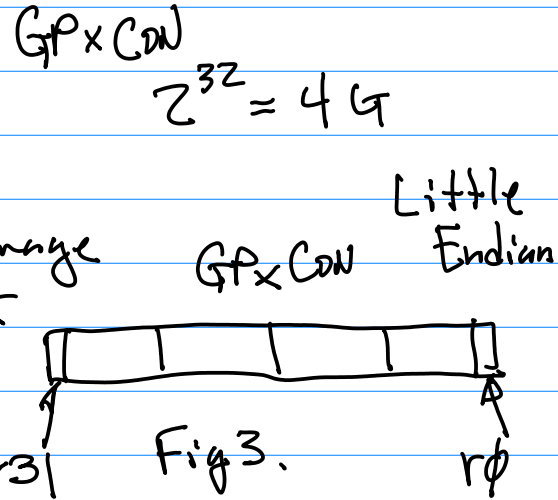 GPxCON
2^32 = 4 G
Little
Endian
GPxCON
Fig 3.
rφ